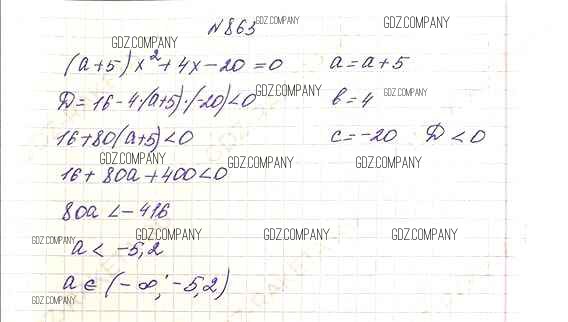 N863
(a+5)x²+4x-20=0 a=a+5
D=16-4·(a+5)·(-20)<0 b=4
16+80(a+5)<0 c=-20 D<0
16+80a+400<0
80a<-416
a<-5,2
a∈(-∞;-5,2)
GDZ.COMPANY GDZ.COMPANY
GDZ.COMPANY
GDZ.COMPANY GDZ.COMPANY
GDZ.COMPANY GDZ.COMPANY GDZ.COMPANY
GDZ.COMPANY GDZ.COMPANY GDZ.COMPANY GDZ.COMPANY
GDZ.COMPANY